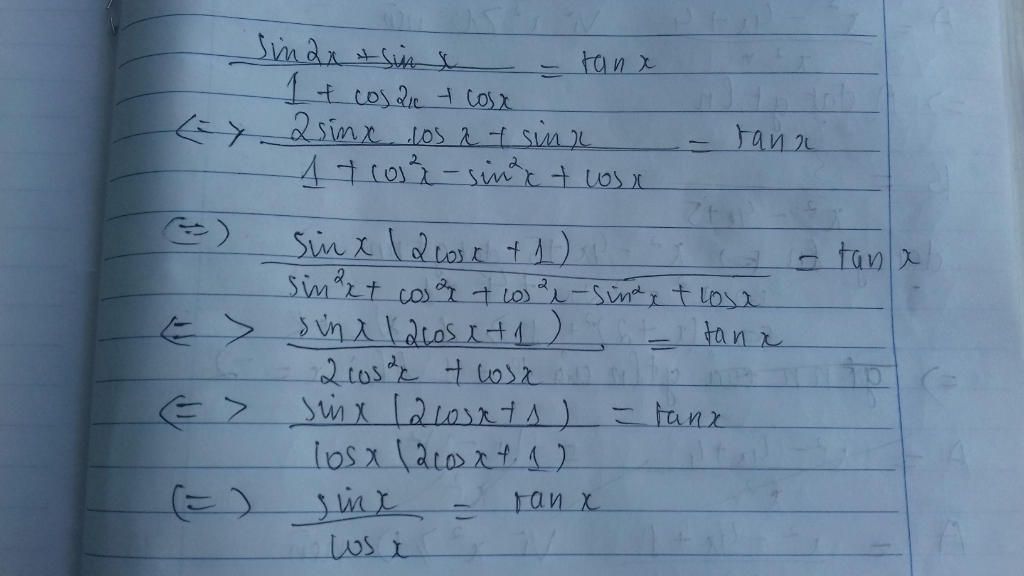 sin2x + sin x / 1 + cos2x + cosx = tan x
<=> 2sinx . cos x + sin x / 1 + cos²x - sin²x + cosx = tan x
(=) sin x (2cosx + 1) / sin²x + cos²x + cos²x - sin²x + cosx = tan x
<=> sin x (2cosx + 1) / 2cos²x + cosx = tan x
<=> sin x (2cosx + 1) / cosx (2cosx + 1) = tanx
(=) sin x / cos x = tan x